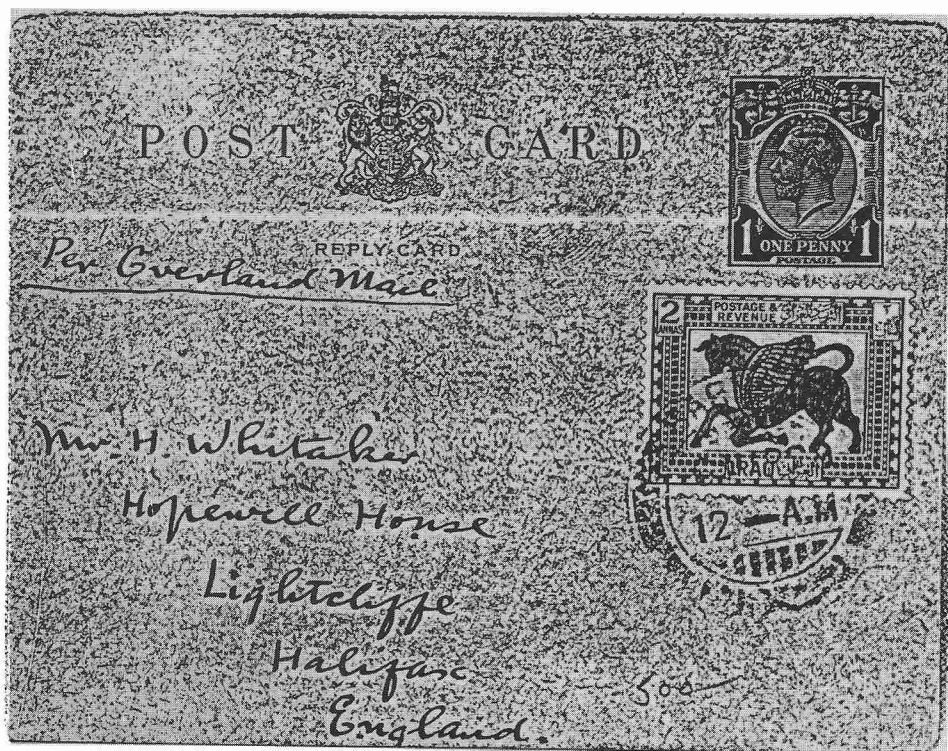 POST CARD
REPLY CARD
Per Overland Mail
1 1
ONE PENNY
POSTAGE
2 POSTAGE & REVENUE
ANNAS
IRAQ
Mr. H. Whitaker
Hopewell House
Lightcliffe
Halifax
England.
12 — A.M
500